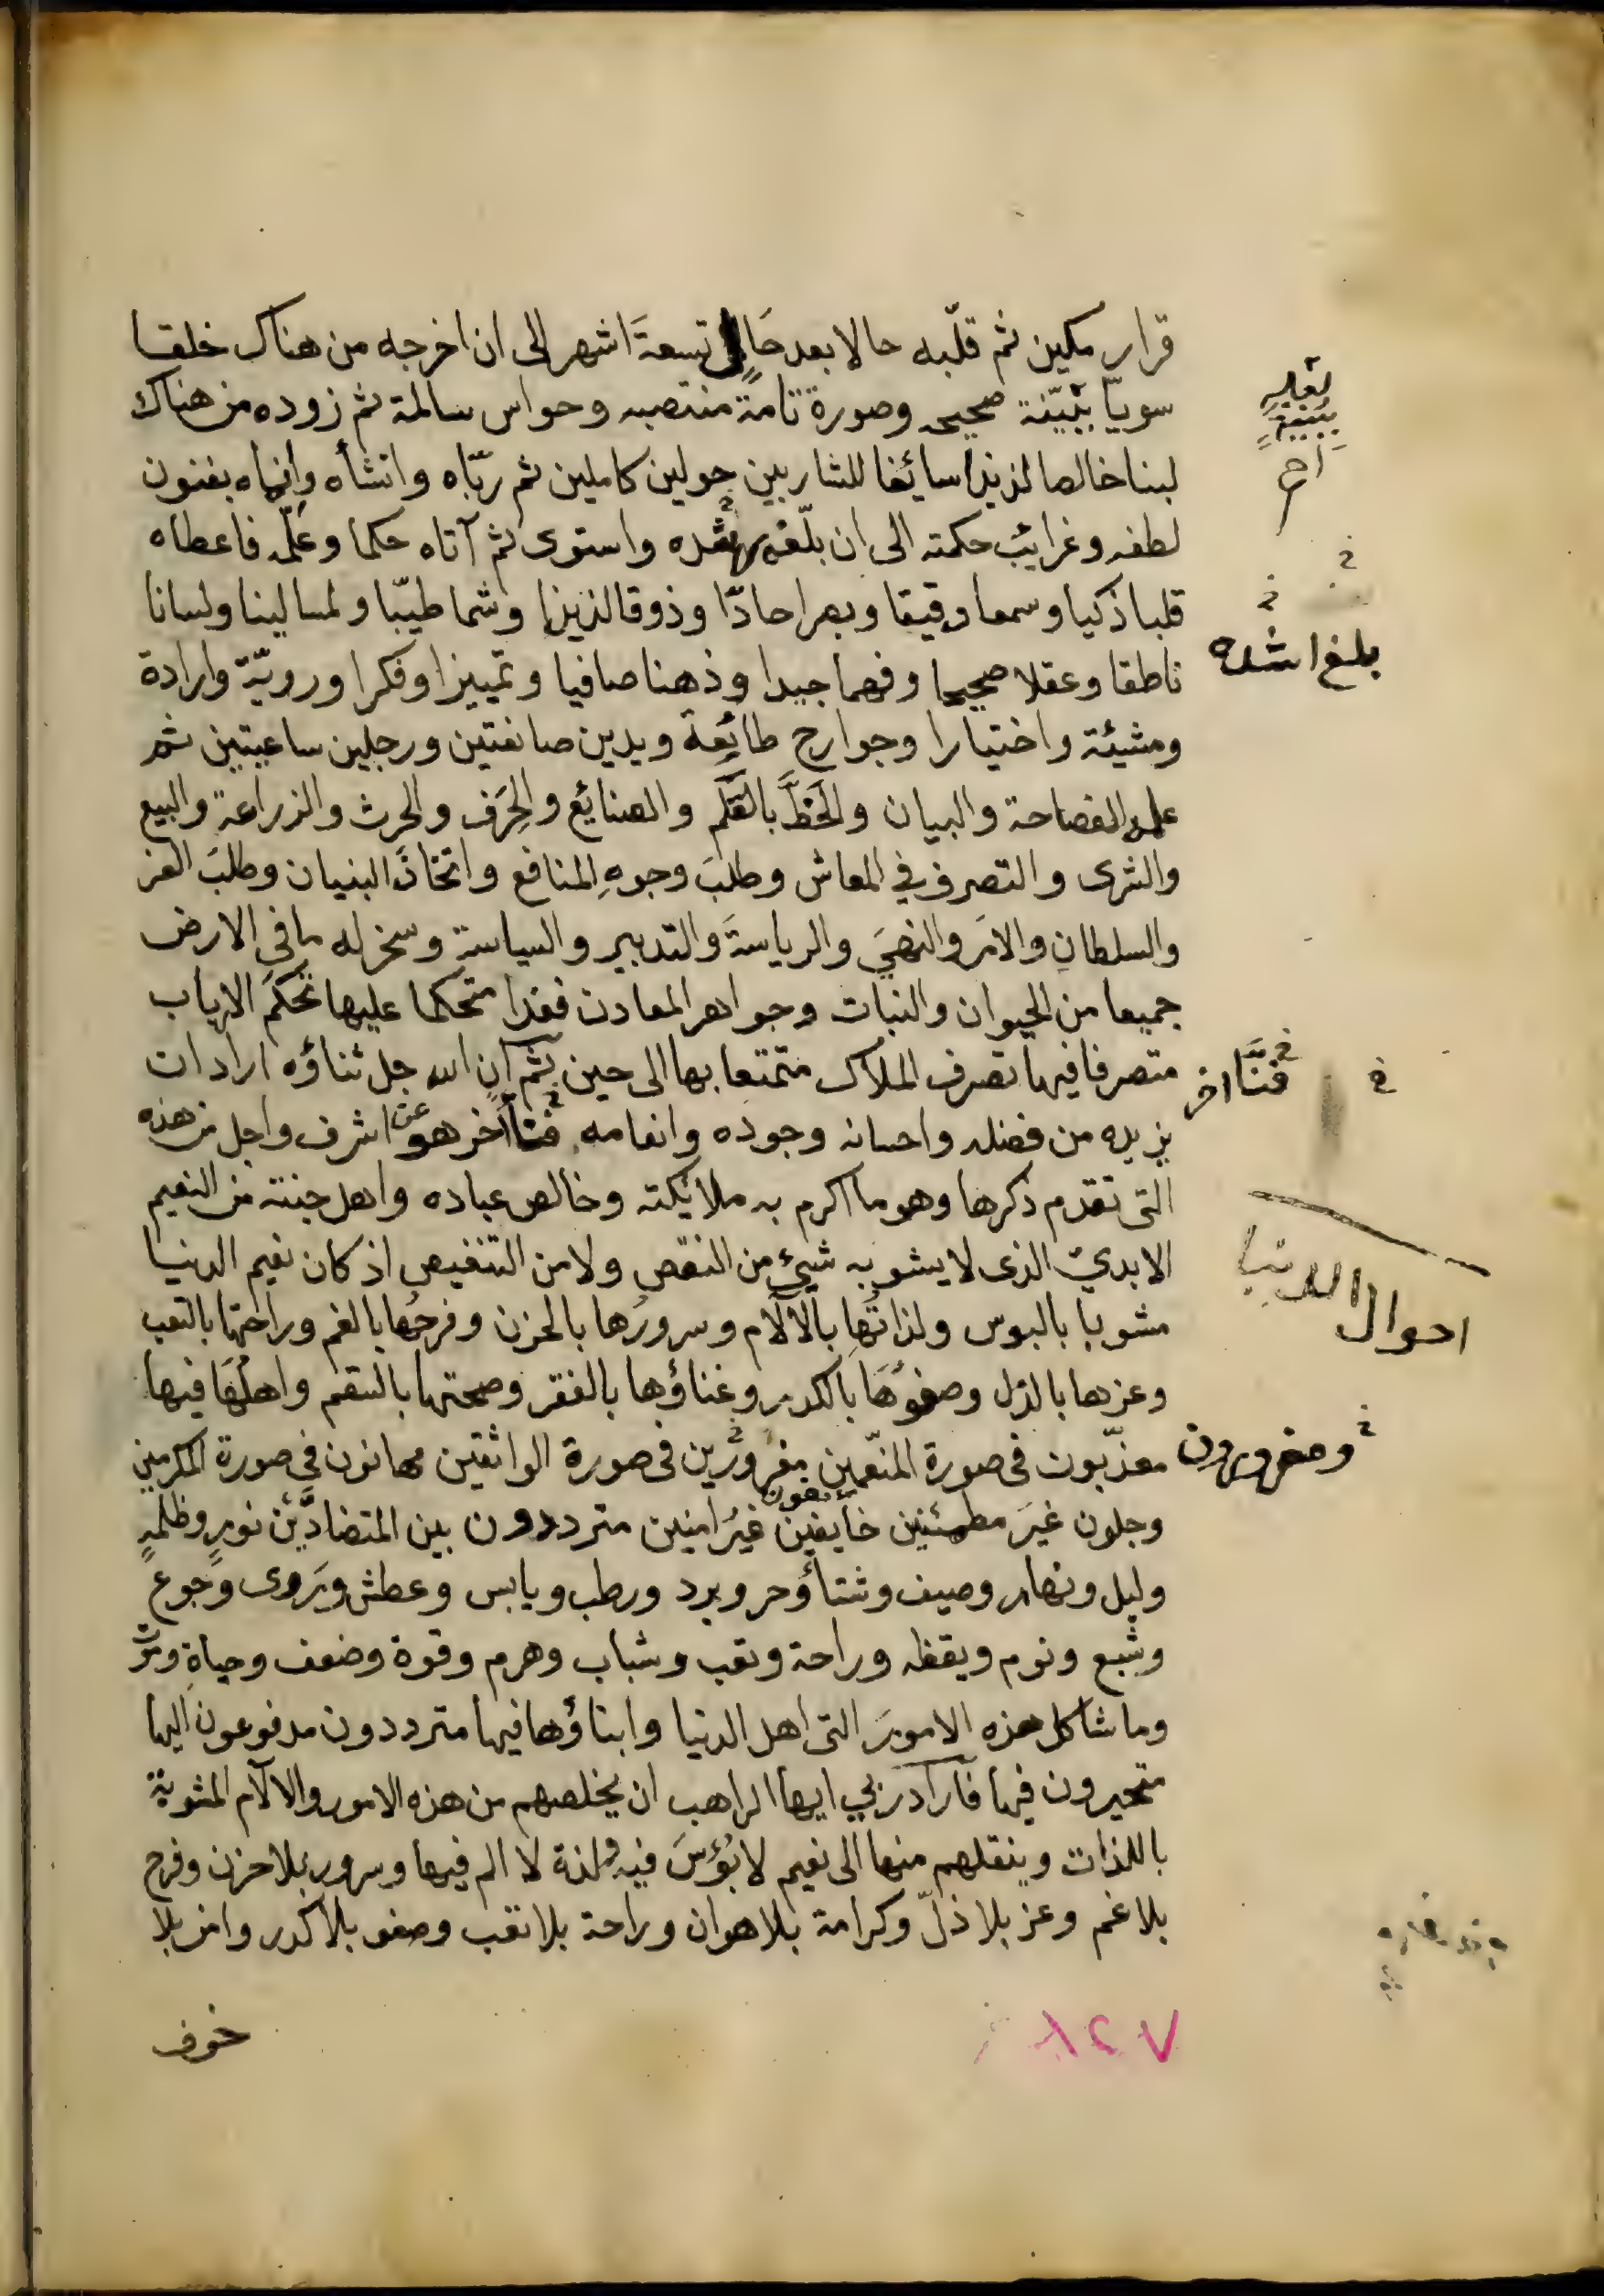 قرار مكين ثم قلّبه حالا بعد حَالٍ تسعةَ اشهر الى ان اخرجه من هناك خلقا
سويّا ببيّنة صحيحه وصورة تامةٍ منتصبه وحواس سالمة ثم زوده من هناك
لبنا خالصا لذيذا سائغا للشاربين حولين كاملين ثم ربّاه وانشأه وانماه بفنون
لطفه وغرائب حكمته الى ان بلّغه اشده واستوى ثم آتاه حكما وعلمه فاعطاه
قلبا ذكيا وسمعا دقيقا وبصرا حادّا وذوقا لذيذا وشما طيّبا ولمسا لينا ولسانا
بلغ اشده
ناطقا وعقلا صحيحا وفهما جيدا وذهنا صافيا وتمييزا وفكرا ورويّة وارادة
ومشيئة واختيارا وجوارح طائعةَ ويدين صانعتين ورجلين ساعيتين ثم
علمه الفصاحة والبيان والخطَّ بالقلم والصنايع والحِرَف والحرث والزراعة والبيع
والشرى والتصرف في المعاش وطلبَ وجوهِ المنافع واتخاذَ البنيان وطلبَ العز
والسلطان والامرَ والنهيَ والرياسةَ والتدبير والسياسة وسخر له ما فى الارض
جميعا من الحيوان والنبات وجواهر المعادن فغدا متحكما عليها تحكمَ الارباب
متصرفا فيها تصرف الملاك متمتعا بها الى حين ثم ان الله جل ثناؤه اراد ان
فنّا اخر
يزيده من فضله واحسانه وجوده وانعامه فنا آخر هو اشرف واجل من هذه
التى تقدم ذكرها وهو ما اكرم به ملائكته وخالص عباده واهل جنته من النعيم
الابديّ الذى لا يشوبه شيئ من النقص ولا من التنغيص اذ كان نعيم الدنيا
احوال الدنيا
مشوبا بالبوس ولذاتُها بالآلام وسرورُها بالحزن وفرحُها بالغم وراحتها بالتعب
وعزها بالذل وصفوُها بالكدر وغناؤها بالفقر وصحتها بالسقم واهلُها فيها
ومغرورون
معذّبون فى صورة المنعّمين مغرورين فى صورة الواثقين مهانون فى صورة المكرمين
وجلون غيرَ مطمئنين خايفين غيرُ امنين مترددون بين المتضادّين نورٍ وظلمةٍ
وليل ونهار وصيف وشتأ وحر وبرد ورطب ويابس وعطش وروى وجوع
وشبع ونوم ويقظه وراحة وتعب وشباب وهرم وقوة وضعف وحياة وموت
وما شاكل هذه الامورَ التى اهل الدنيا وابناؤها فيها مترددون مدفوعون اليها
متحيرون فيها فاراد ربي ايها الراهب ان يخلصهم من هذه الامور والالآم المشوبة
باللذات وينقلهم منها الى نعيم لا بُؤسَ فيه ولذة لا الم فيها وسرور بلا حزن وفرح
بلا غم وعز بلا ذلّ وكرامة بلا هوان وراحة بلا تعب وصفو بلا كدر وامن بلا
خوف